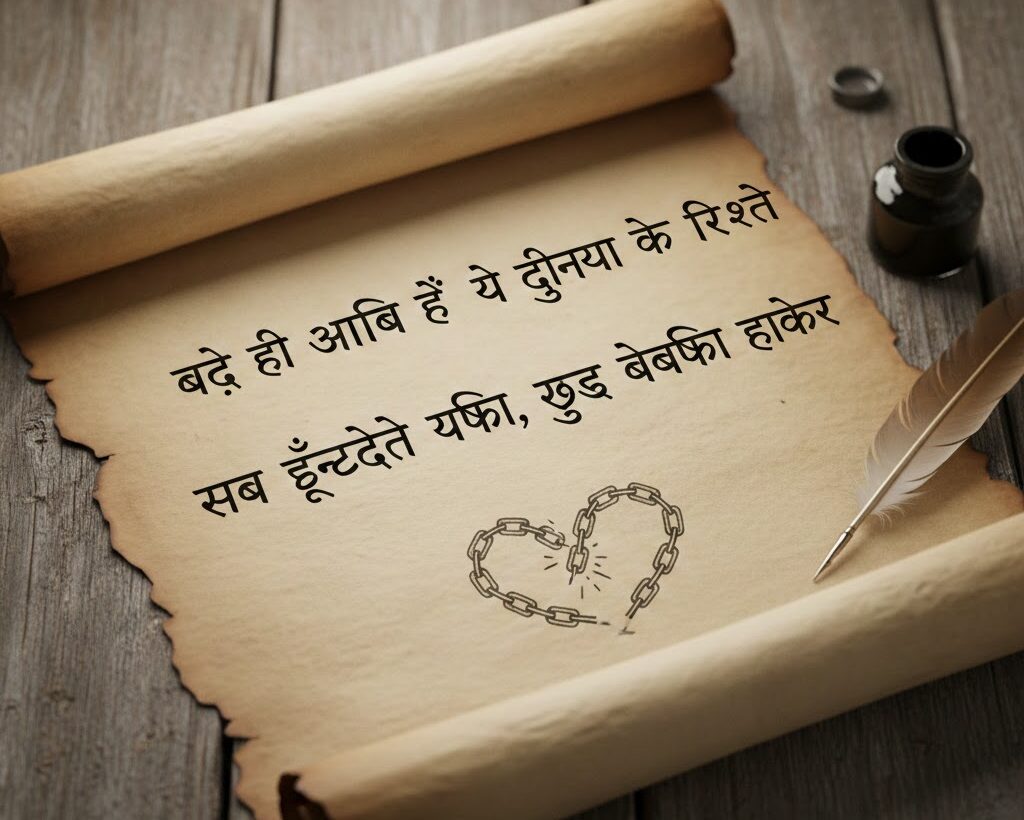 बढ़े ही आबि हैं ये दुीनया के रिश्ते
सब हूँन्टदेते यफिा, खुड बेबफिा हाकेर